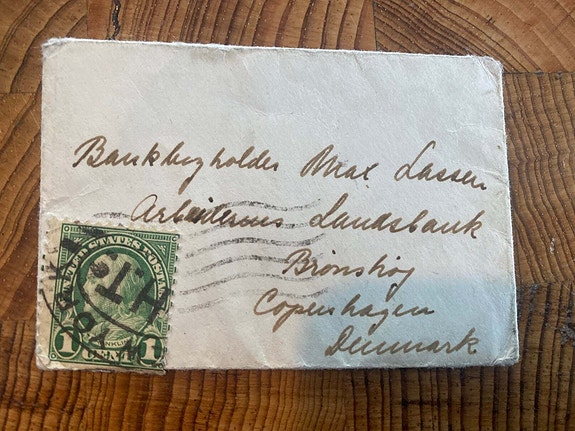 Bankbogholder Max Lassen
Arbejdernes Landsbank
Brönshöj
Copenhagen
Denmark
UNITED STATES POSTAGE
FRANKLIN
1 CENT 1